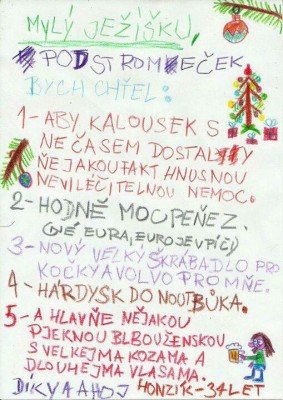 MYLÝ JEŽÍŠKU,
POD STROMEČEK
BYCH CHŤEL:
1-ABY KALOUSEK S
NEČASEM DOSTALY
ŇEJAKOU FAKT HNUSNOU
NEVILÉČITELNOU NEMOC.
2-HODNĚ MOC PEŇEZ.
(NÉ EURA, EURO JE V PÍČI)
3-NOVÝ VELKÝ ŠKRÁBADLO PRO
KOČKY A VOLVO PRO MŇE.
4-HÁRDYSK DO NOUTBŮKA.
5-A HLAVŇE NĚJAKOU
PJEKNOU BLBOU ŽENSKOU
S VELKEJMA KOZAMA A
DLOUHEJMA VLASAMA.
DÍKY A AHOJ HONZÍK-34 LET